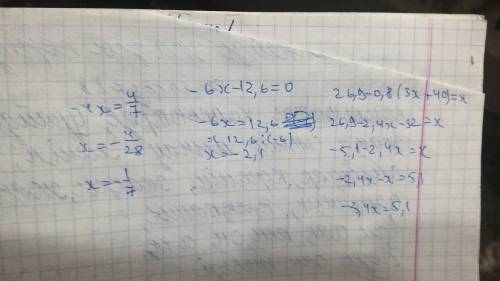 -4x = 4/7
x = -4/28
x = -1/7
-6x-12,6=0
-6x=12,6
x 12,6:(-6)
x=-2,1
26,9-0,8(3x+40)=x
26,9-2,4x-32=x
-5,1-2,4x=x
-2,4x-x=5,1
-3,4x=5,1